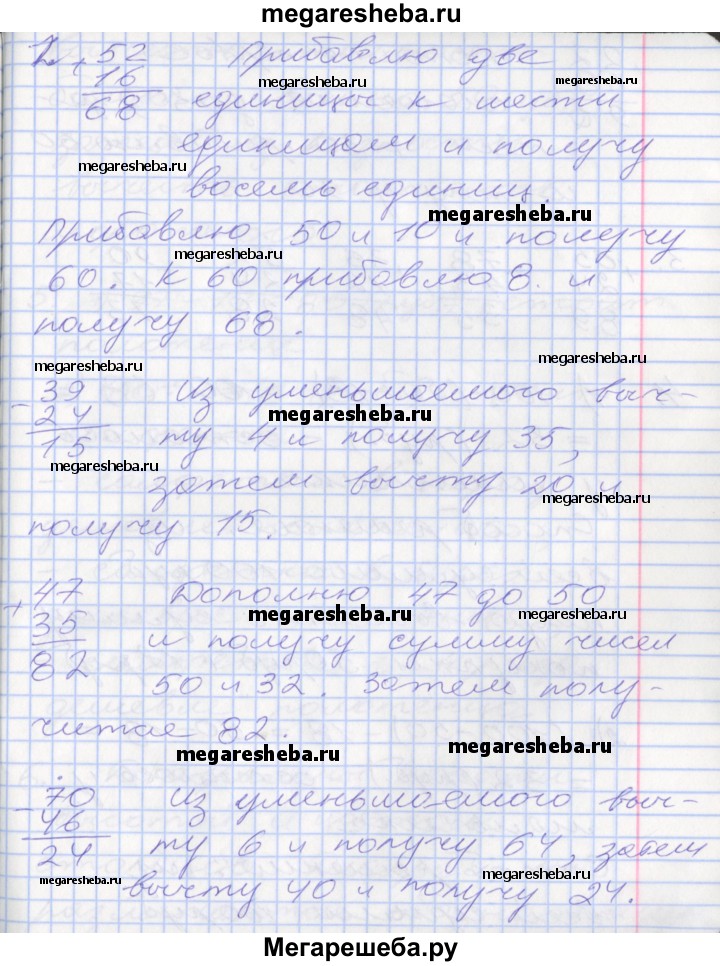 megaresheba.ru
1. + 52 Прибавлю две
16 megaresheba.ru megaresheba.ru
68 единицы к шести
единицам и получу
megaresheba.ru
восемь единиц.
megaresheba.ru
Прибавлю 50 и 10 и получу
megaresheba.ru
60. К 60 прибавлю 8. и
получу 68.
megaresheba.ru megaresheba.ru
- 39 Из уменьшаемого выч-
24 megaresheba.ru
15 ту 4 и получу 35,
megaresheba.ru
затем вычту 20 и
megaresheba.ru
получу 15.
+ 47 Дополню 47 до 50
megaresheba.ru megaresheba.ru
35 и получу сумму чисел
82
50 и 32. Затем полу-
читае 82.
megaresheba.ru megaresheba.ru
- 70 Из уменьшаемого выч-
46
24 ту 6 и получу 64, затем
megaresheba.ru megaresheba.ru
вычту 40 и получу 24.
Мегарешеба.ру